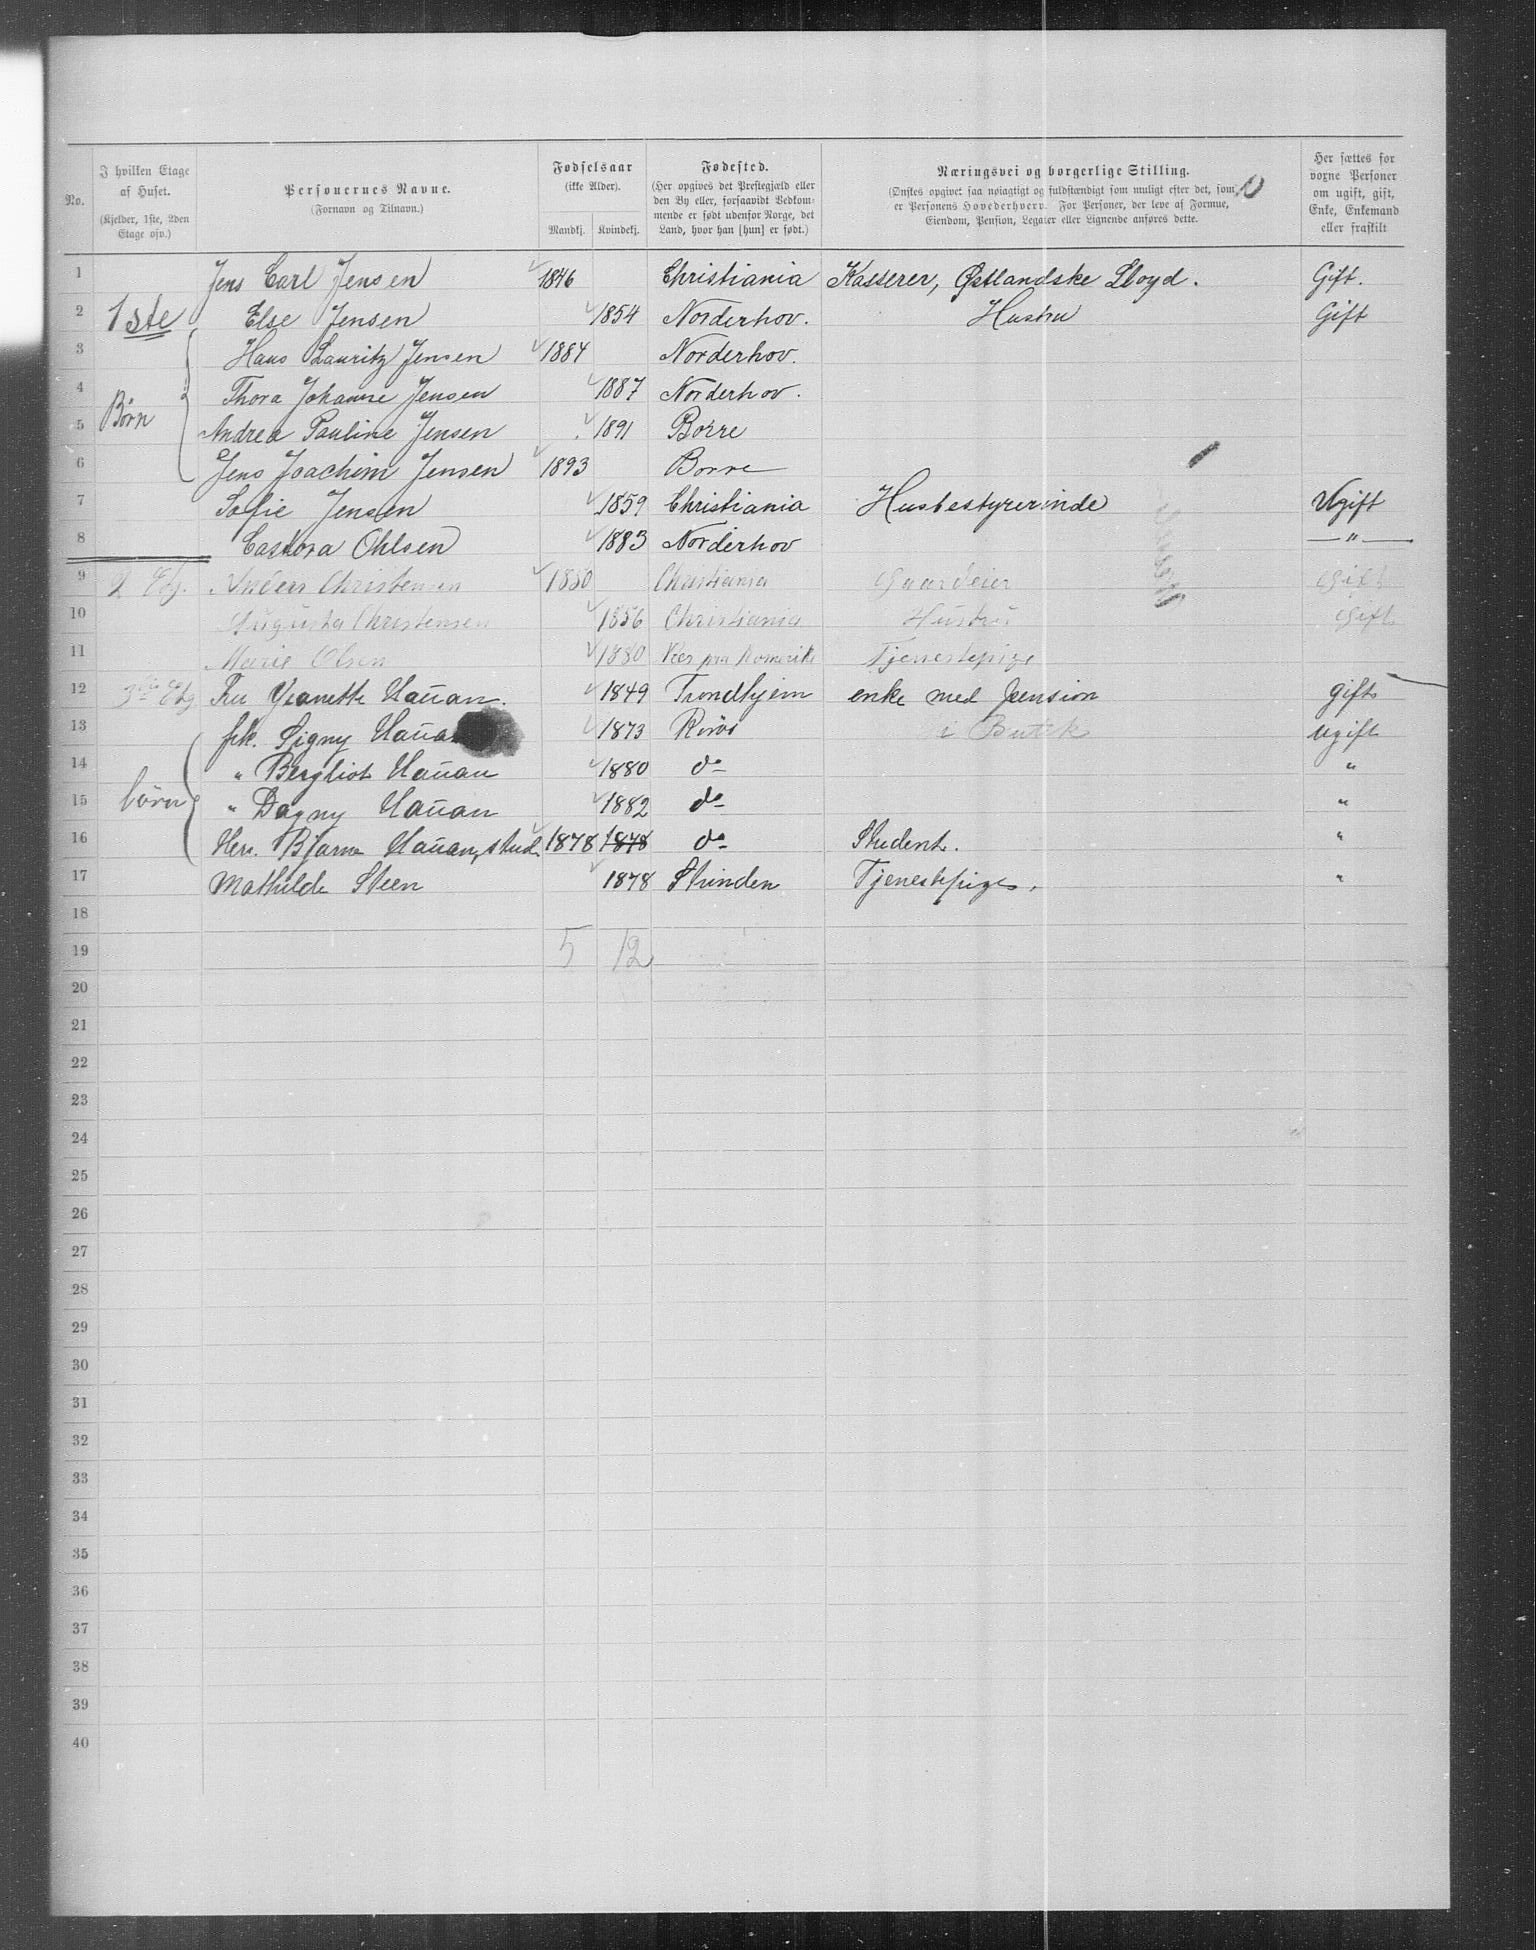 No. | I hvilken Etage af Huset. (Kjelder, 1ste, 2den Etage osv.) | Personernes Navne. (Fornavn og Tilnavn.) | Fødselsaar (ikke Alder). Mandkj. | Kvindekj. | Fødested. (Her opgives det Prestegjæld eller den By eller, forsaavidt Vedkommende er født udenfor Norge, det Land, hvor han [hun] er født.) | Næringsvei og borgerlige Stilling. (Ønskes opgivet saa nøiagtigt og fuldstændigt som muligt efter det, som er Personens Hovederhverv. For Personer, der leve af Formue, Eiendom, Pension, Legater eller Lignende anføres dette. | Her sættes for voxne Personer om ugift, gift, Enke, Enkemand eller fraskilt
1 Jens Carl Jensen 1846 Christiania Kasserer, Østlandske Lloyd. Gift.
2 1ste Else Jensen 1854 Norderhov. Hustru Gift
3 Hans Lauritz Jensen 1884 Norderhov.
4 Thora Johanne Jensen 1887 Norderhov.
5 Børn Andrea Pauline Jensen 1891 Borre
6 Jens Joachim Jensen 1893 Borre
7 Sofie Jensen 1859 Christiania Husbestyrerinde Ugift
8 Castora Ohlsen 1883 Norderhov — " —
9 2 Etg. Anders Christensen 1850 Christiania Gaardeier Gift
10 Augusta Christensen 1856 Christiania Hustru Gift
11 Marie Olsen 1880 Romerike Tjenestepige
12 3die Etg Fru Jeanette Hauan. 1849 Trondhjem enke med Pension gift
13 frk. Signy Hauan 1873 Røros i Butik ugift
14 " Bergliot Hauan 1880 do "
15 børn " Dagny Hauan 1882 do "
16 Herr. Bjarne Hauan, stud. 1878 1878 do Student. "
17 Mathilde Steen 1878 Strinden Tjenestepige. "
18
19 5 12
20
21
22
23
24
25
26
27
28
29
30
31
32
33
34
35
36
37
38
39
40